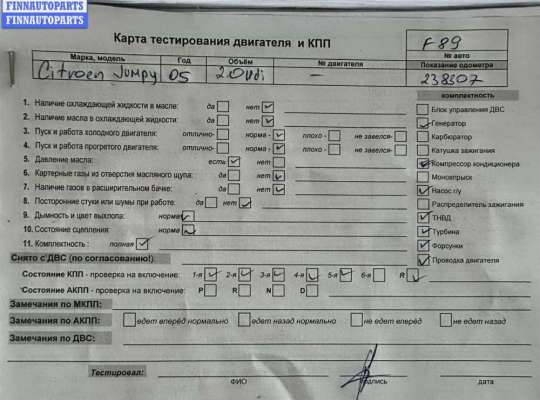 FINNAUTOPARTS
FINNAUTOPARTS
Карта тестирования двигателя и КПП
F89
№ авто
Марка, модель Год Объём № двигателя Показание одометра
Citroen Jumpy 05 2.0hdi — 238307
комплектность
1. Наличие охлаждающей жидкости в масле: да нет
2. Наличие масла в охлаждающей жидкости: да нет
3. Пуск и работа холодного двигателя: отлично- норма - плохо - не завелся-
4. Пуск и работа прогретого двигателя: отлично- норма - плохо - не завелся-
5. Давление масла: есть нет
6. Картерные газы из отверстия масляного щупа: да нет
7. Наличие газов в расширительном бачке: да нет
8. Посторонние стуки или шумы при работе: да нет
9. Дымность и цвет выхлопа: норма
10. Состояние сцепления: норма
11. Комплектность : полная
Блок управления ДВС
Генератор
Карбюратор
Катушка зажигания
Компрессор кондиционера
Моновпрыск
Насос г/у
Распределитель зажигания
ТНВД
Турбина
Форсунки
Проводка двигателя
Снято с ДВС (по согласованию!)
Состояние КПП - проверка на включение: 1-я 2-я 3-я 4-я 5-я 6-я R
Состояние АКПП - проверка на включение: P R N D
Замечания по МКПП:
Замечания по АКПП: едет вперёд нормально едет назад нормально не едет вперёд не едет назад
Замечания по ДВС:
Тестировал:
ФИО подпись дата